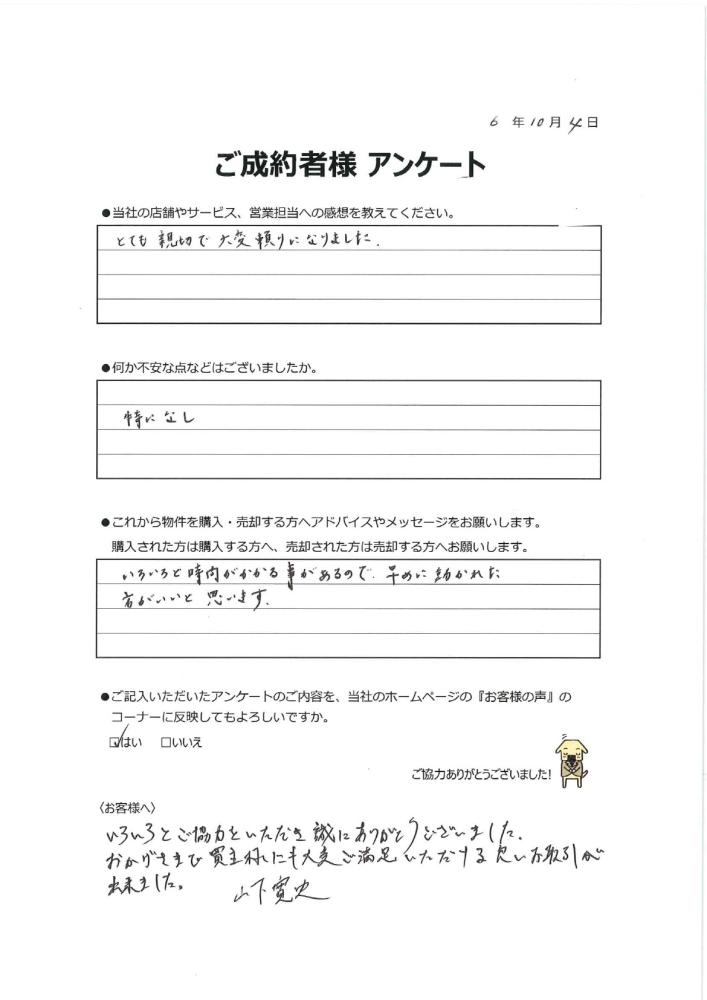 6 年 10 月 4 日
ご成約者様 アンケート
●当社の店舗やサービス、営業担当への感想を教えてください。
とても 親切で 大変 頼りになりました.
●何か不安な点などはございましたか。
特に なし
●これから物件を購入・売却する方へアドバイスやメッセージをお願いします。
購入された方は購入する方へ、売却された方は売却する方へお願いします。
いろいろと時間がかかる事があるので. 早めに 動かれた
方がいいと 思います.
●ご記入いただいたアンケートのご内容を、当社のホームページの『お客様の声』の
コーナーに反映してもよろしいですか。
☑はい □いいえ
ご協力ありがとうございました!
〈お客様へ〉
いろいろとご協力をいただき 誠にありがとうございました.
おかげさまで 買主様にも大変ご満足いただける 良いお取引が
出来ました。 山下寛史